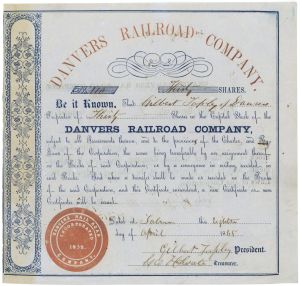 DANVERS RAILROAD COMPANY.
No. 110 Thirty SHARES.
Be it Known, That Gilbert Tapley of Danvers
Proprietor of Thirty Shares in the Capital Stock of the
DANVERS RAILROAD COMPANY,
subject to all Assessments thereon, and to the provisions of the Charter, and
Laws of the Corporation, the same being transferable by an assignment thereof
in the Books of said Corporation, or by a conveyance in writing recorded in
said Books. And when a transfer shall be made or recorded in the Books
of the said Corporation, and this Certificate surrendered, a new Certificate or new
Certificates will be issued.
Dated at Salem this Eighteen
day of April 1865
Gilbert Tapley President.
Treasurer.
DANVERS RAIL ROAD
INCORPORATED
1852.
COMPANY.